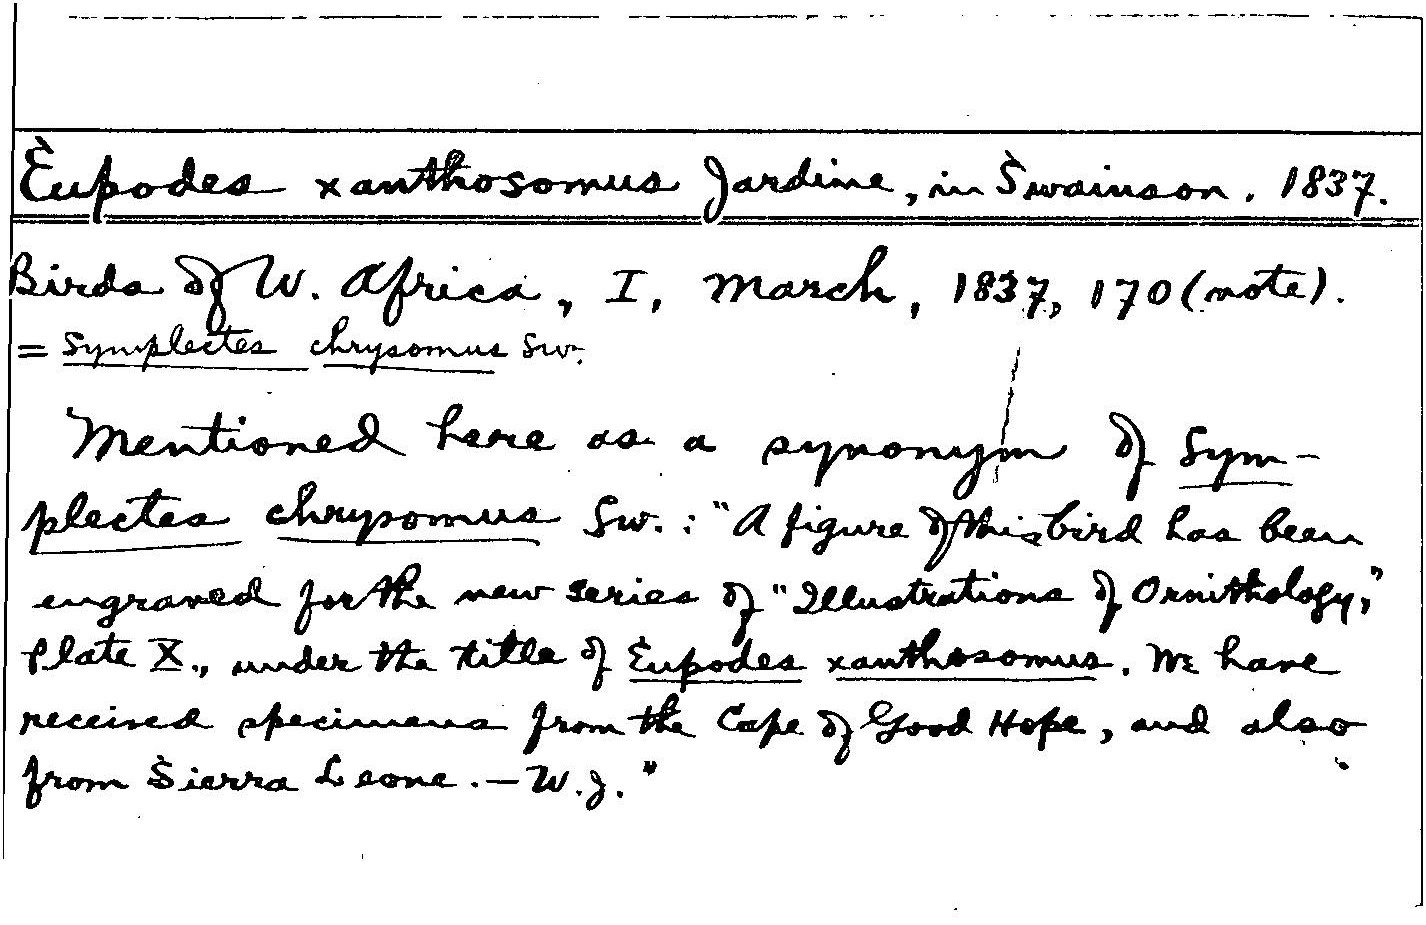 Eupodes xanthosomus Jardine, in Swainson. 1837.
Birds of W. Africa, I, March, 1837, 170 (note).
= Symplectes chrysomus Sw.
Mentioned here as a synonym of Sym-
plectes chrysomus Sw.: "A figure of this bird has been
engraved for the new series of "Illustrations of Ornithology,"
Plate X., under the title of Eupodes xanthosomus. We have
received specimens from the Cape of Good Hope, and also
from Sierra Leone. — W. J."